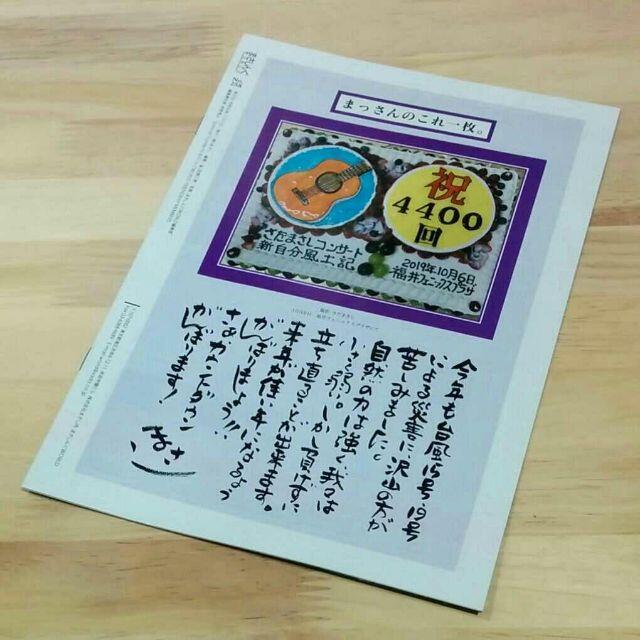 まっさんのこれ一枚。
祝
4400
回
さだまさしコンサート
新自分風土記
2019年10月6日
福井フェニックスプラザ
撮影 さだまさし
今年も台風15号・19号
による災害に沢山の方が
苦しみました。
自然の力は強く、我々は
小さく弱い。しかし負けずに
立ち直ることが出来ます。
来年が佳い年になるよう
がんばりましょう!!
さあカウントダウン
がんばります!
まさし